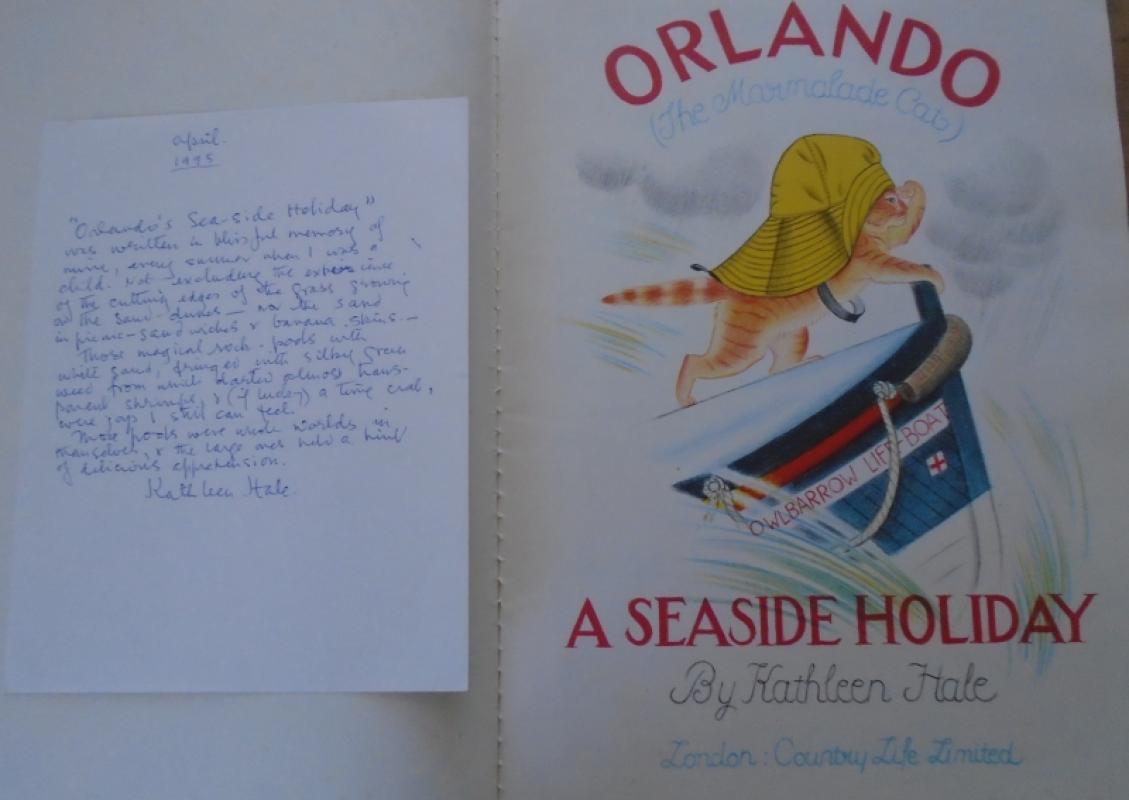 April.
1995
"Orlando's Sea-side Holiday"
was written a blissful memory of
mine, every summer when I was a
child. Not excluding the experience
of the cutting edges of the grass growing
on the sand-dunes — nor the sand
in picnic-sandwiches & banana skins. —
Those magical rock-pools with
white sand, fringed with silky green
weed from which darted almost trans-
parent shrimps, & (if lucky) a tiny crab,
were joys I still can feel.
These pools were whole worlds in
themselves, & the large ones held a hint
of delicious apprehension.
Kathleen Hale.
ORLANDO
(The Marmalade Cat)
OWLBARROW LIFE-BOAT
A SEASIDE HOLIDAY
By Kathleen Hale
London: Country Life Limited